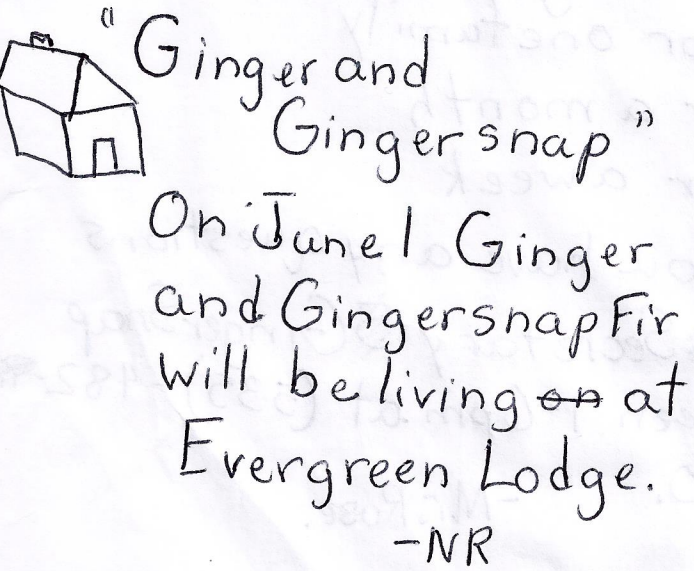 "Ginger and
Gingersnap"
On June 1 Ginger
and Gingersnap Fir
will be living on at
Evergreen Lodge.
-NR